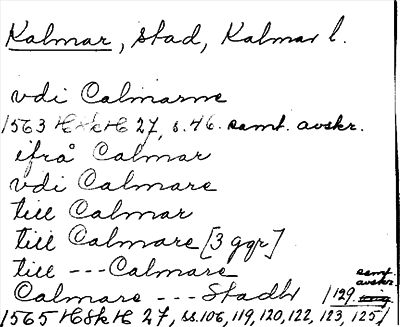 Kalmar, stad, Kalmar l.
vdi Calmarne
1563 HSkH 27, s. 46. samt. avskr.
ifrå Calmar
vdi Calmare
till Calmar
till Calmare [3 ggr]
till --- Calmare
samt. avskr.
Calmare --- Stadh /129.
1565 HSkH 27, ss. 106, 119, 120, 122, 123, 125/